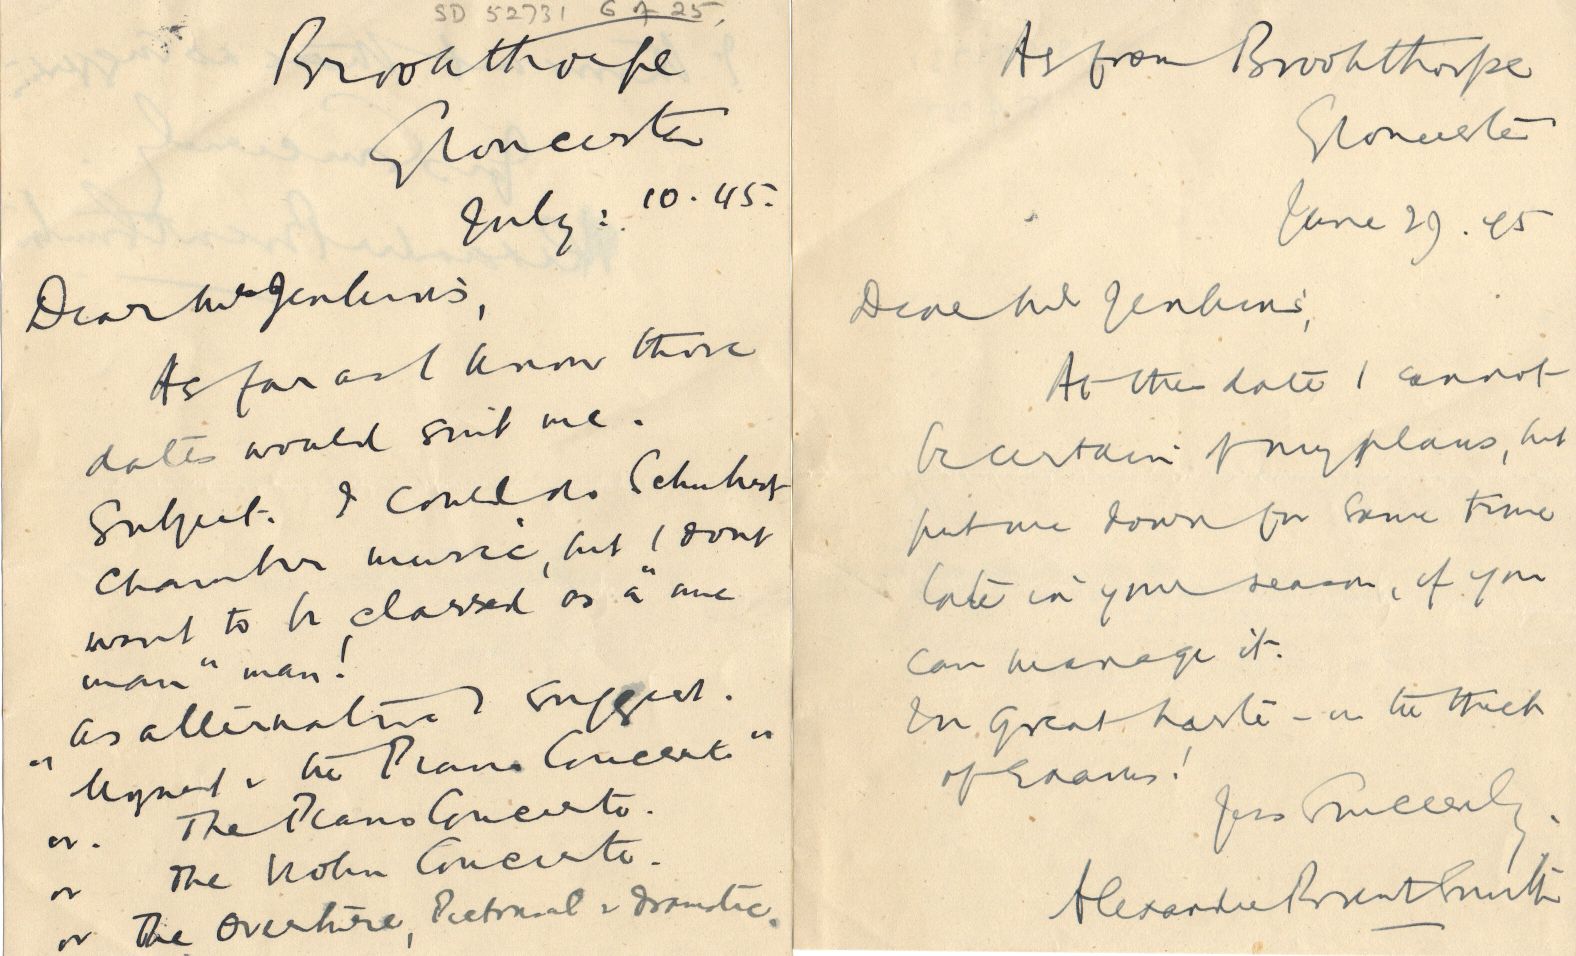 SD 52731 6 7 25.
Brookthorpe
Gloucester
July: 10. 45.
Dear Mr Jenkins,
As far as I know those
dates would suit me.
Subject. I could do Schubert
chamber music, but I dont
want to be classed as a "one
man" man!
As alternative I suggest.
" Mozart & the Piano Concerto"
or. The Piano Concerto.
or The Violin Concerto.
or The Overture, Pictorial & Dramatic.
As from Brookthorpe
Gloucester
June 29. 45
Dear Mr Jenkins,
At this date I cannot
be certain of my plans, but
put me down for some time
late in your season, if you
can manage it.
In great haste – in the thick
of Exams!
Yrs Sincerely.
Alexander Brent Smith